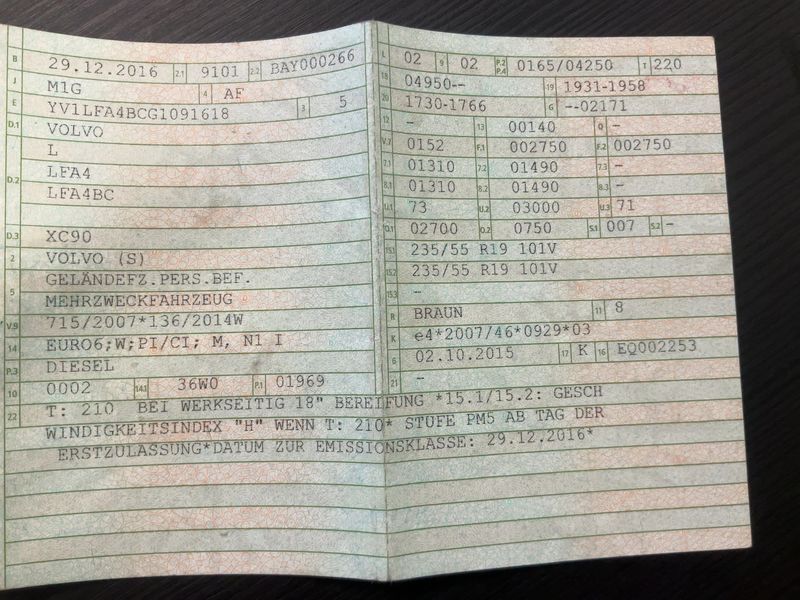 B 29.12.2016 2.1 9101 2.2 BAY000266
J M1G 4 AF
E YV1LFA4BCG1091618 3 5
D.1 VOLVO
L
D.2 LFA4
LFA4BC
D.3 XC90
2 VOLVO (S)
5 GELÄNDEFZ.PERS.BEF.
MEHRZWECKFAHRZEUG
V.9 715/2007*136/2014W
14 EURO6;W;PI/CI; M, N1 I
P.3 DIESEL
10 0002 14.1 36W0 P.1 01969
L 02 9 02 P.2 P.4 0165/04250 T 220
18 04950-- 19 1931-1958
20 1730-1766 G --02171
12 - 13 00140 Q -
V.7 0152 F.1 002750 F.2 002750
7.1 01310 7.2 01490 7.3 -
8.1 01310 8.2 01490 8.3 -
U.1 73 U.2 03000 U.3 71
O.1 02700 O.2 0750 S.1 007 S.2 -
15.1 235/55 R19 101V
15.2 235/55 R19 101V
15.3 -
R BRAUN 11 8
K e4*2007/46*0929*03
6 02.10.2015 17 K 16 EQ002253
21 -
22 T: 210 BEI WERKSEITIG 18" BEREIFUNG *15.1/15.2: GESCH
WINDIGKEITSINDEX "H" WENN T: 210* STUFE PM5 AB TAG DER
ERSTZULASSUNG*DATUM ZUR EMISSIONSKLASSE: 29.12.2016*